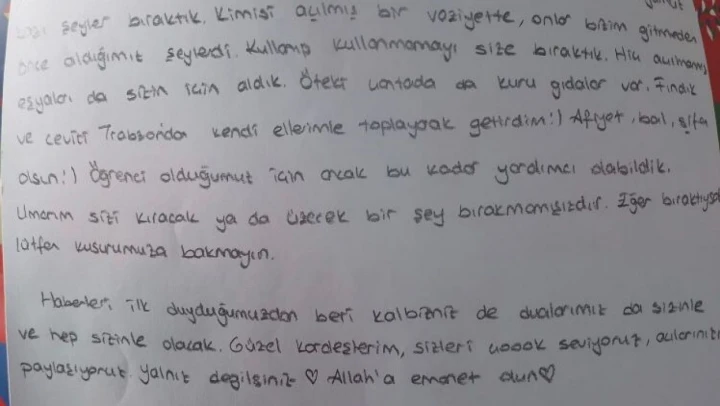 şeyler bıraktık. Kimisi açılmış bir vaziyette, onlar bizim gitmeden
önce aldığımız şeylerdi. Kullanıp kullanmamayı size bıraktık. Hiç açılmamış
eşyaları da sizin için aldık. Öteki çantada da kuru gıdalar var. Fındık
ve cevizi Trabzondan kendi ellerimle toplayarak getirdim:) Afiyet, bal, şifa
olsun:) Öğrenci olduğumuz için ancak bu kadar yardımcı olabildik.
Umarım sizi kıracak ya da üzecek bir şey bırakmamışızdır. Eğer bıraktıysak
lütfen kusurumuza bakmayın.
Haberleri ilk duyduğumuzdan beri kalbimiz de dualarımız da sizinle
ve hep sizinle olacak. Güzel kardeşlerim, sizleri çoook seviyoruz, acılarınızı
paylaşıyoruz. Yalnız değilsiniz ♡ Allah'a emanet olun♡